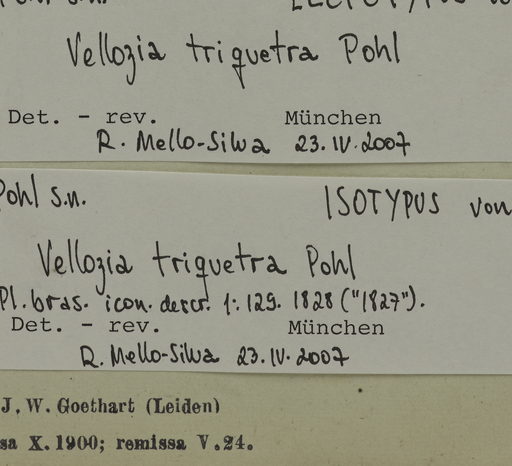 Vellozia triquetra Pohl
Det. - rev. München
R. Mello-Silva 23.IV.2007
Pohl s.n. ISOTYPUS von
Vellozia triquetra Pohl
Pl. bras. icon. descr. 1: 129. 1828 ("1827").
Det. - rev. München
R. Mello-Silva 23.IV.2007
J. W. Goethart (Leiden)
sa X. 1900; remissa V. 24.